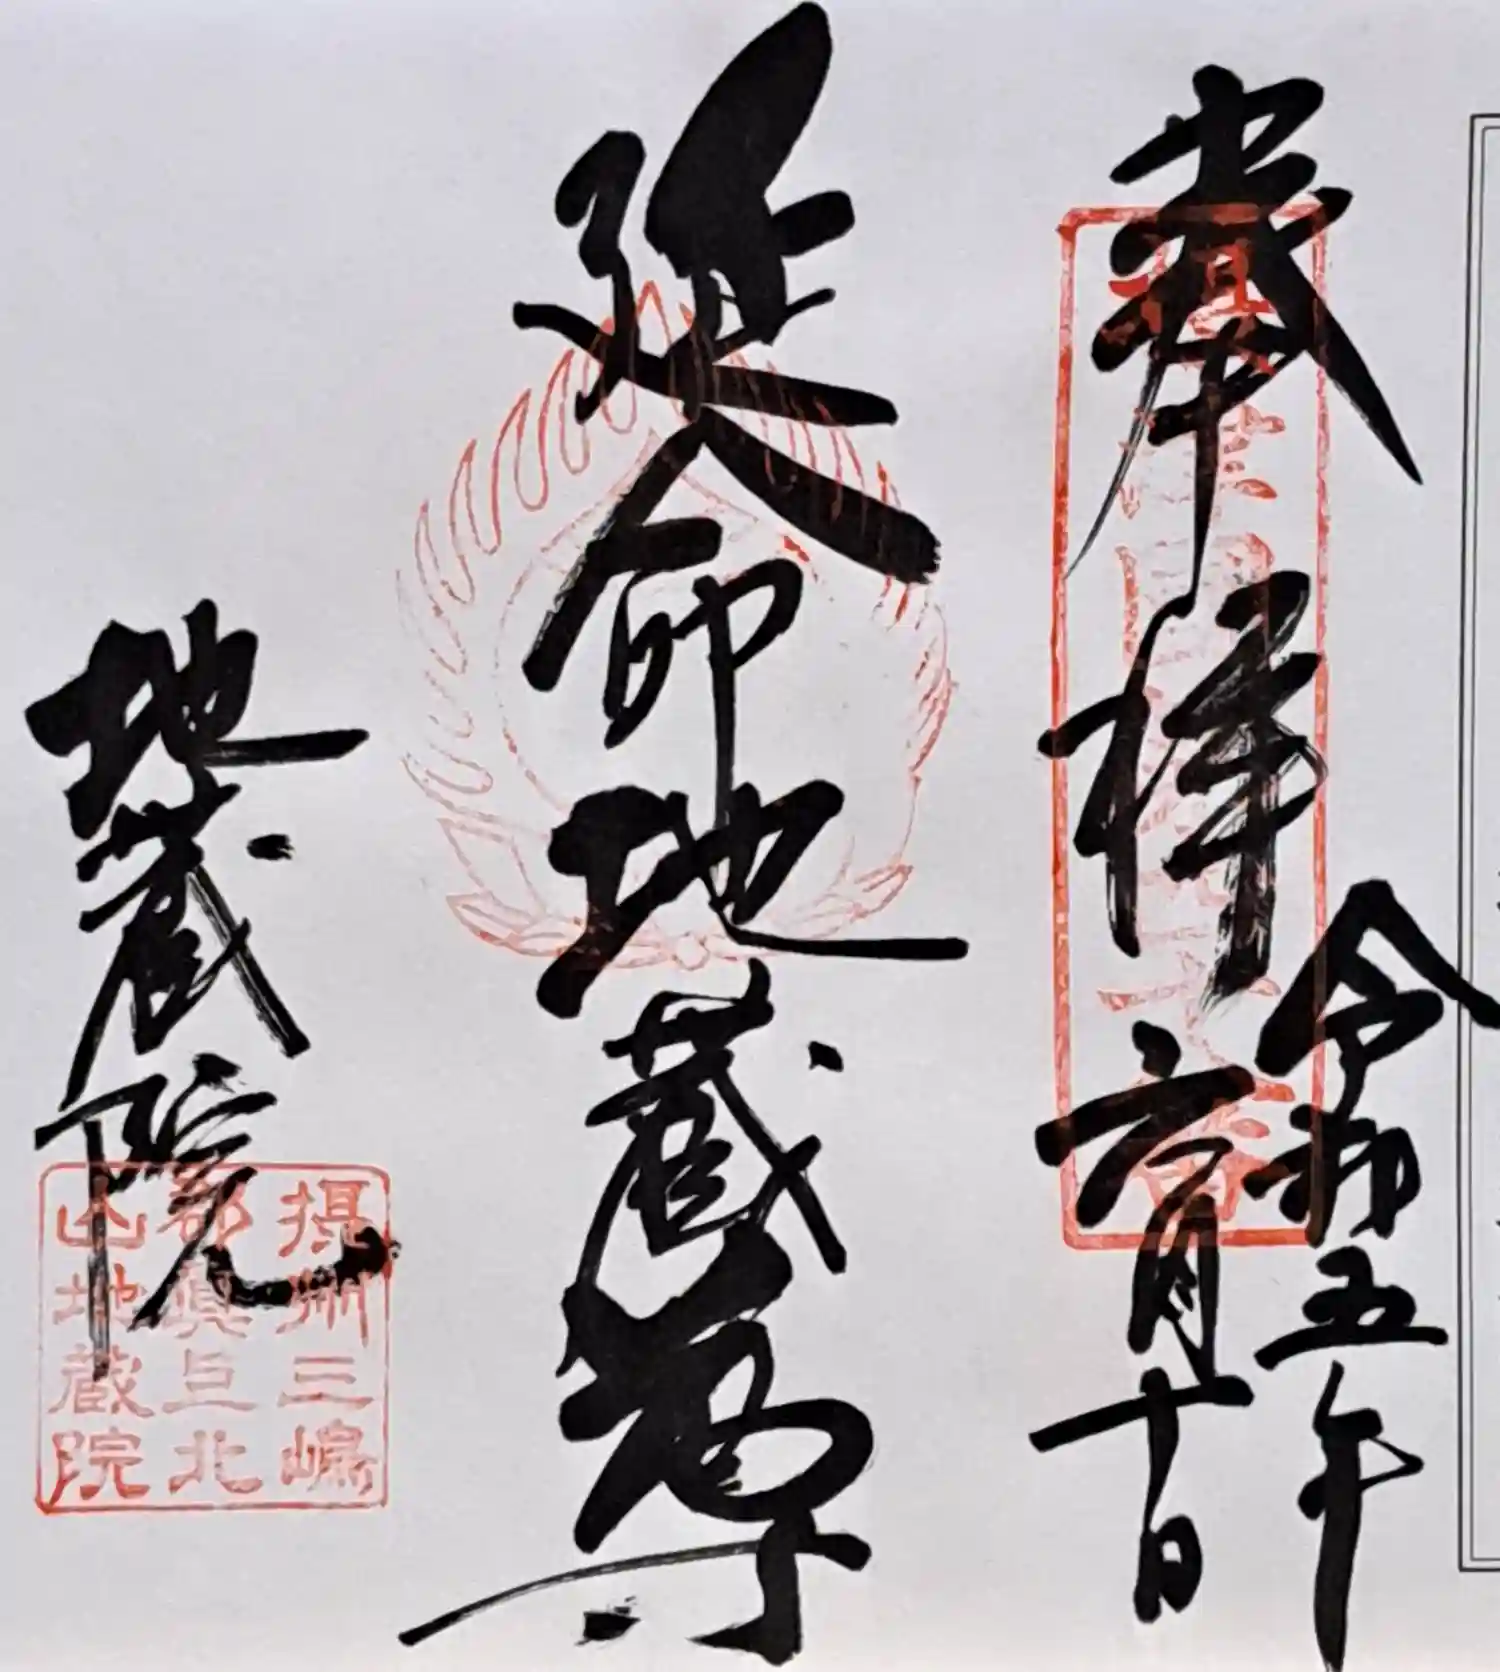 奉拝
令和五年
六月十日
延命地蔵尊
地蔵院
摂州三嶋
郡眞上北
山地蔵院